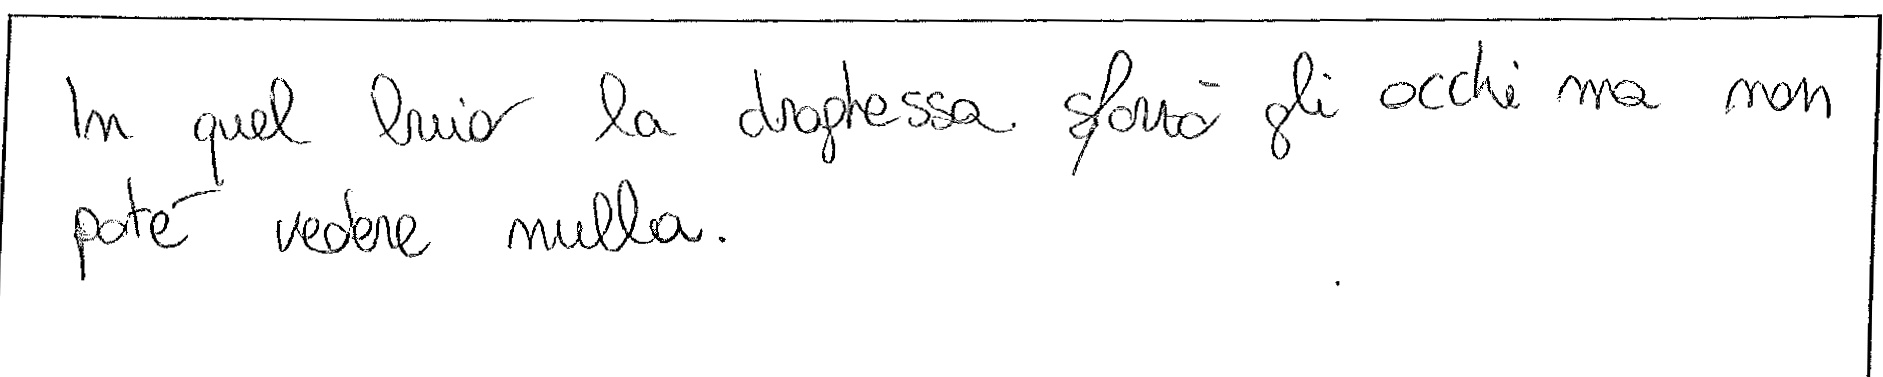 In quel buio la draghessa sforzò gli occhi ma non
poté vedere nulla.